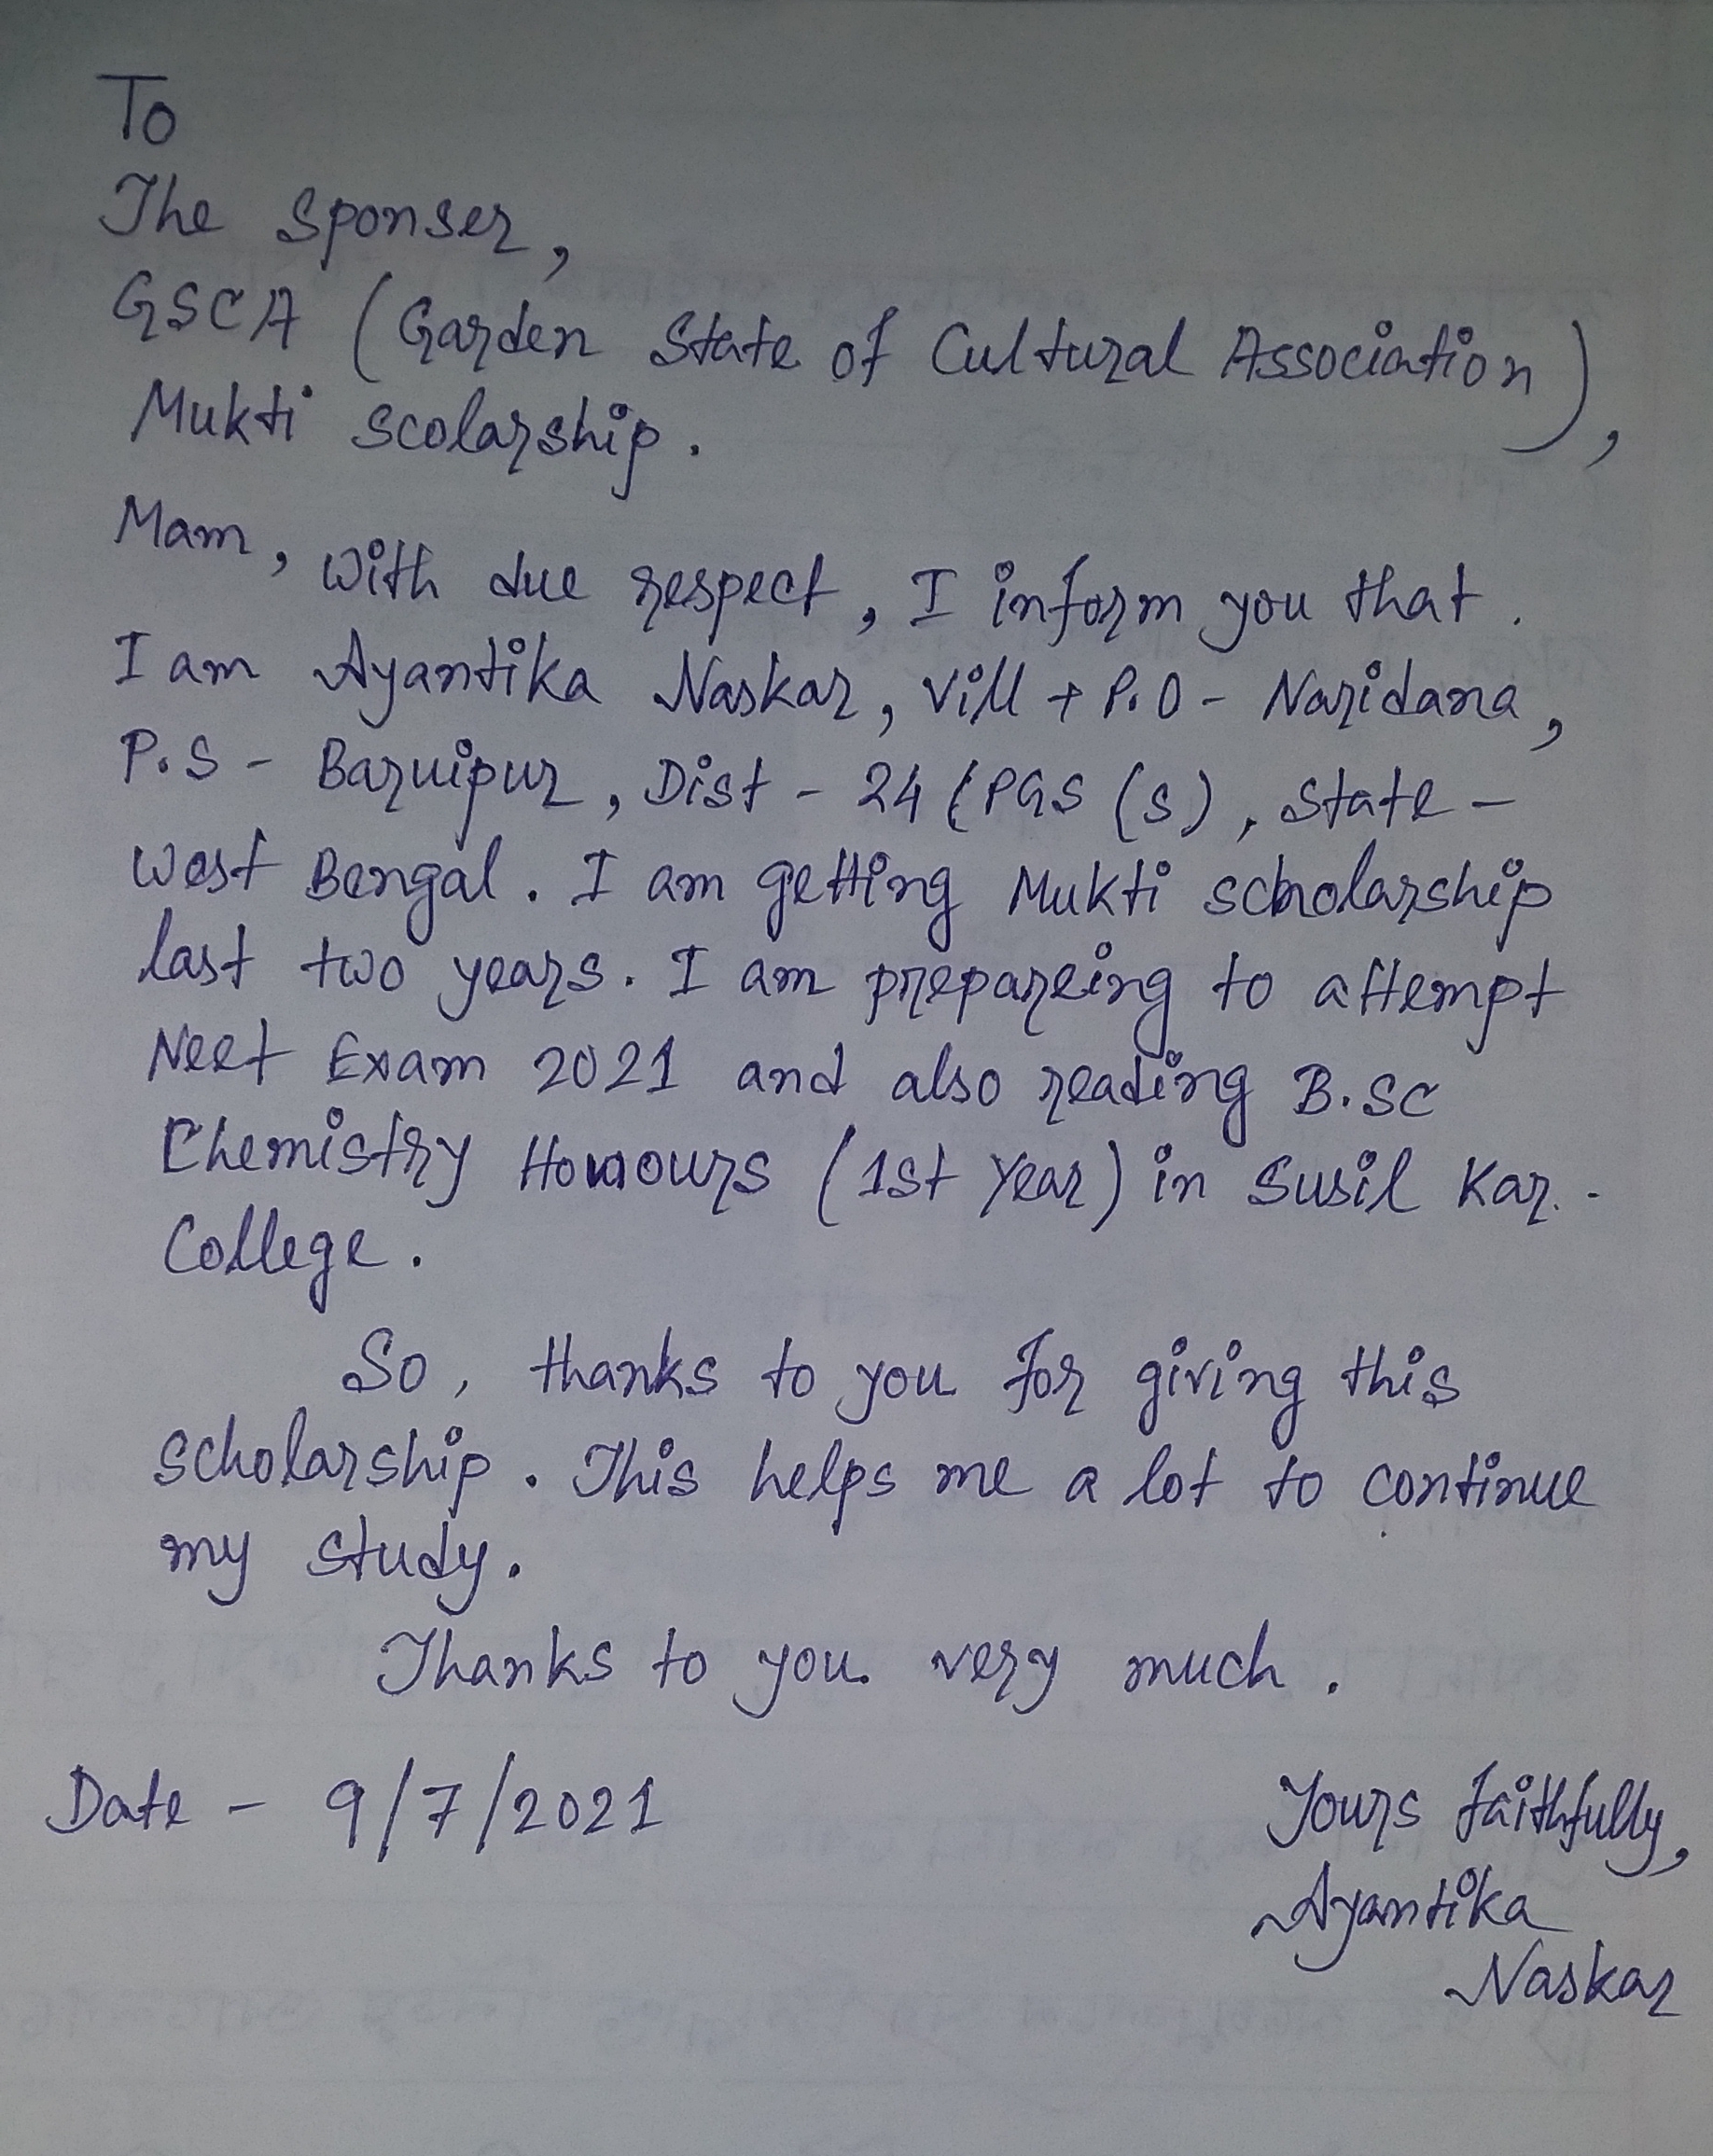 To
The Sponser,
GSCA (Garden State of Cultural Association),
Mukti Scolarship.
Mam, with due respect, I inform you that.
I am Ayantika Naskar, Vill + P.O - Naridana,
P.S - Baruipur, Dist - 24 (PGS (S), State -
West Bengal. I am getting Mukti scholarship
last two years. I am prepareing to attempt
Neet Exam 2021 and also reading B.SC
Chemistry Honours (1st Year) in Susil Kar. -
College.
So, thanks to you for giving this
scholarship. This helps me a lot to continue
my study.
Thanks to you very much.
Date - 9/7/2021
Yours faithfully,
Ayantika
Naskar